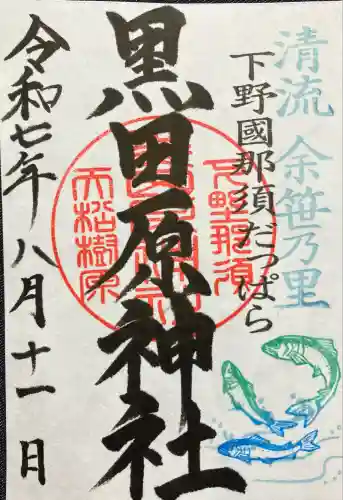 清流 余笹乃里
下野國那須だっぱら
黒田原神社
令和七年八月十一日